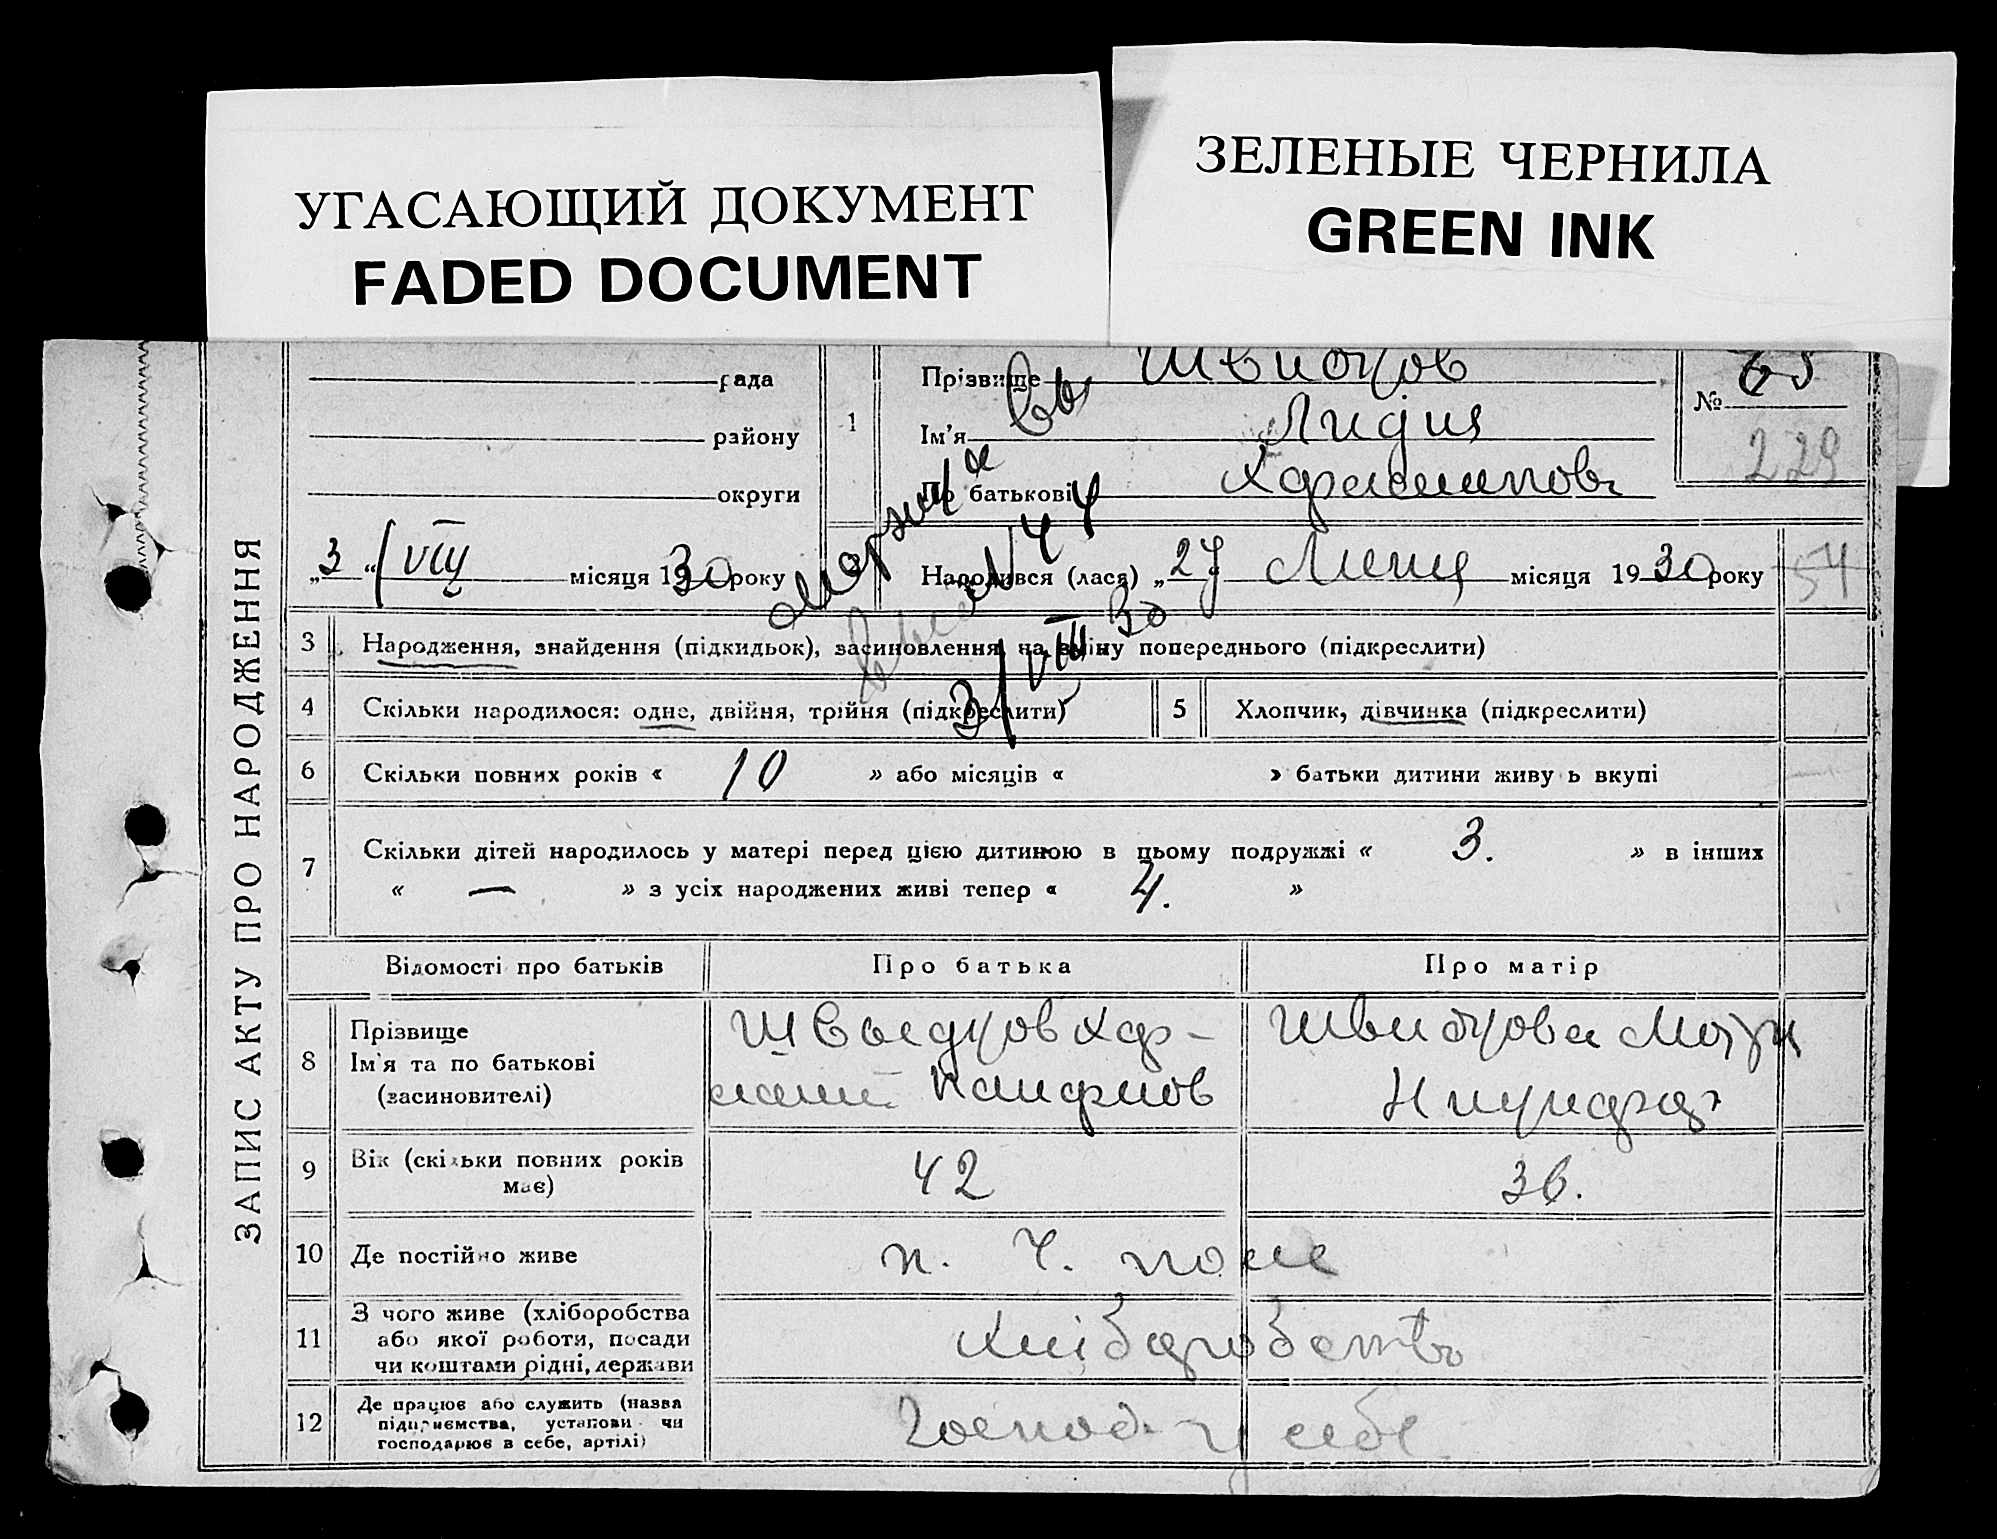 УГАСАЮЩИЙ ДОКУМЕНТ
FADED DOCUMENT
ЗЕЛЕНЫЕ ЧЕРНИЛА
GREEN INK
ЗАПИС АКТУ ПРО НАРОДЖЕННЯ
рада
району
округи
„3“ VIII місяця 1930 року
1
Прізвище
Ім'я Лидия
По батькові
№ 65
229
Народився (лася) „27 Липця місяця 1930 року
54
3/VIII 30
3 Народження, знайдення (підкидьок), засиновлення, на зміну попереднього (підкреслити)
4 Скільки народилося: одне, двійня, трійня (підкреслити)
5 Хлопчик, дівчинка (підкреслити)
6 Скільки повних років « 10 » або місяців « » батьки дитини живуть вкупі
7 Скільки дітей народилось у матері перед цією дитиною в цьому подружжі « 3. » в інших
« — » з усіх народжених живі тепер « 4. »
Відомості про батьків
Про батька
Про матір
8 Прізвище
Ім'я та по батькові
(засиновителі)
9 Вік (скільки повних років
має)
42
36.
10 Де постійно живе
п. Ч. поле
11 З чого живе (хліборобства
або якої роботи, посади
чи коштами рідні, держави
хлібаробство
12 Де працює або служить (назва
підприємства, установи чи
господарює в себе, артілі)
Господ. у себе